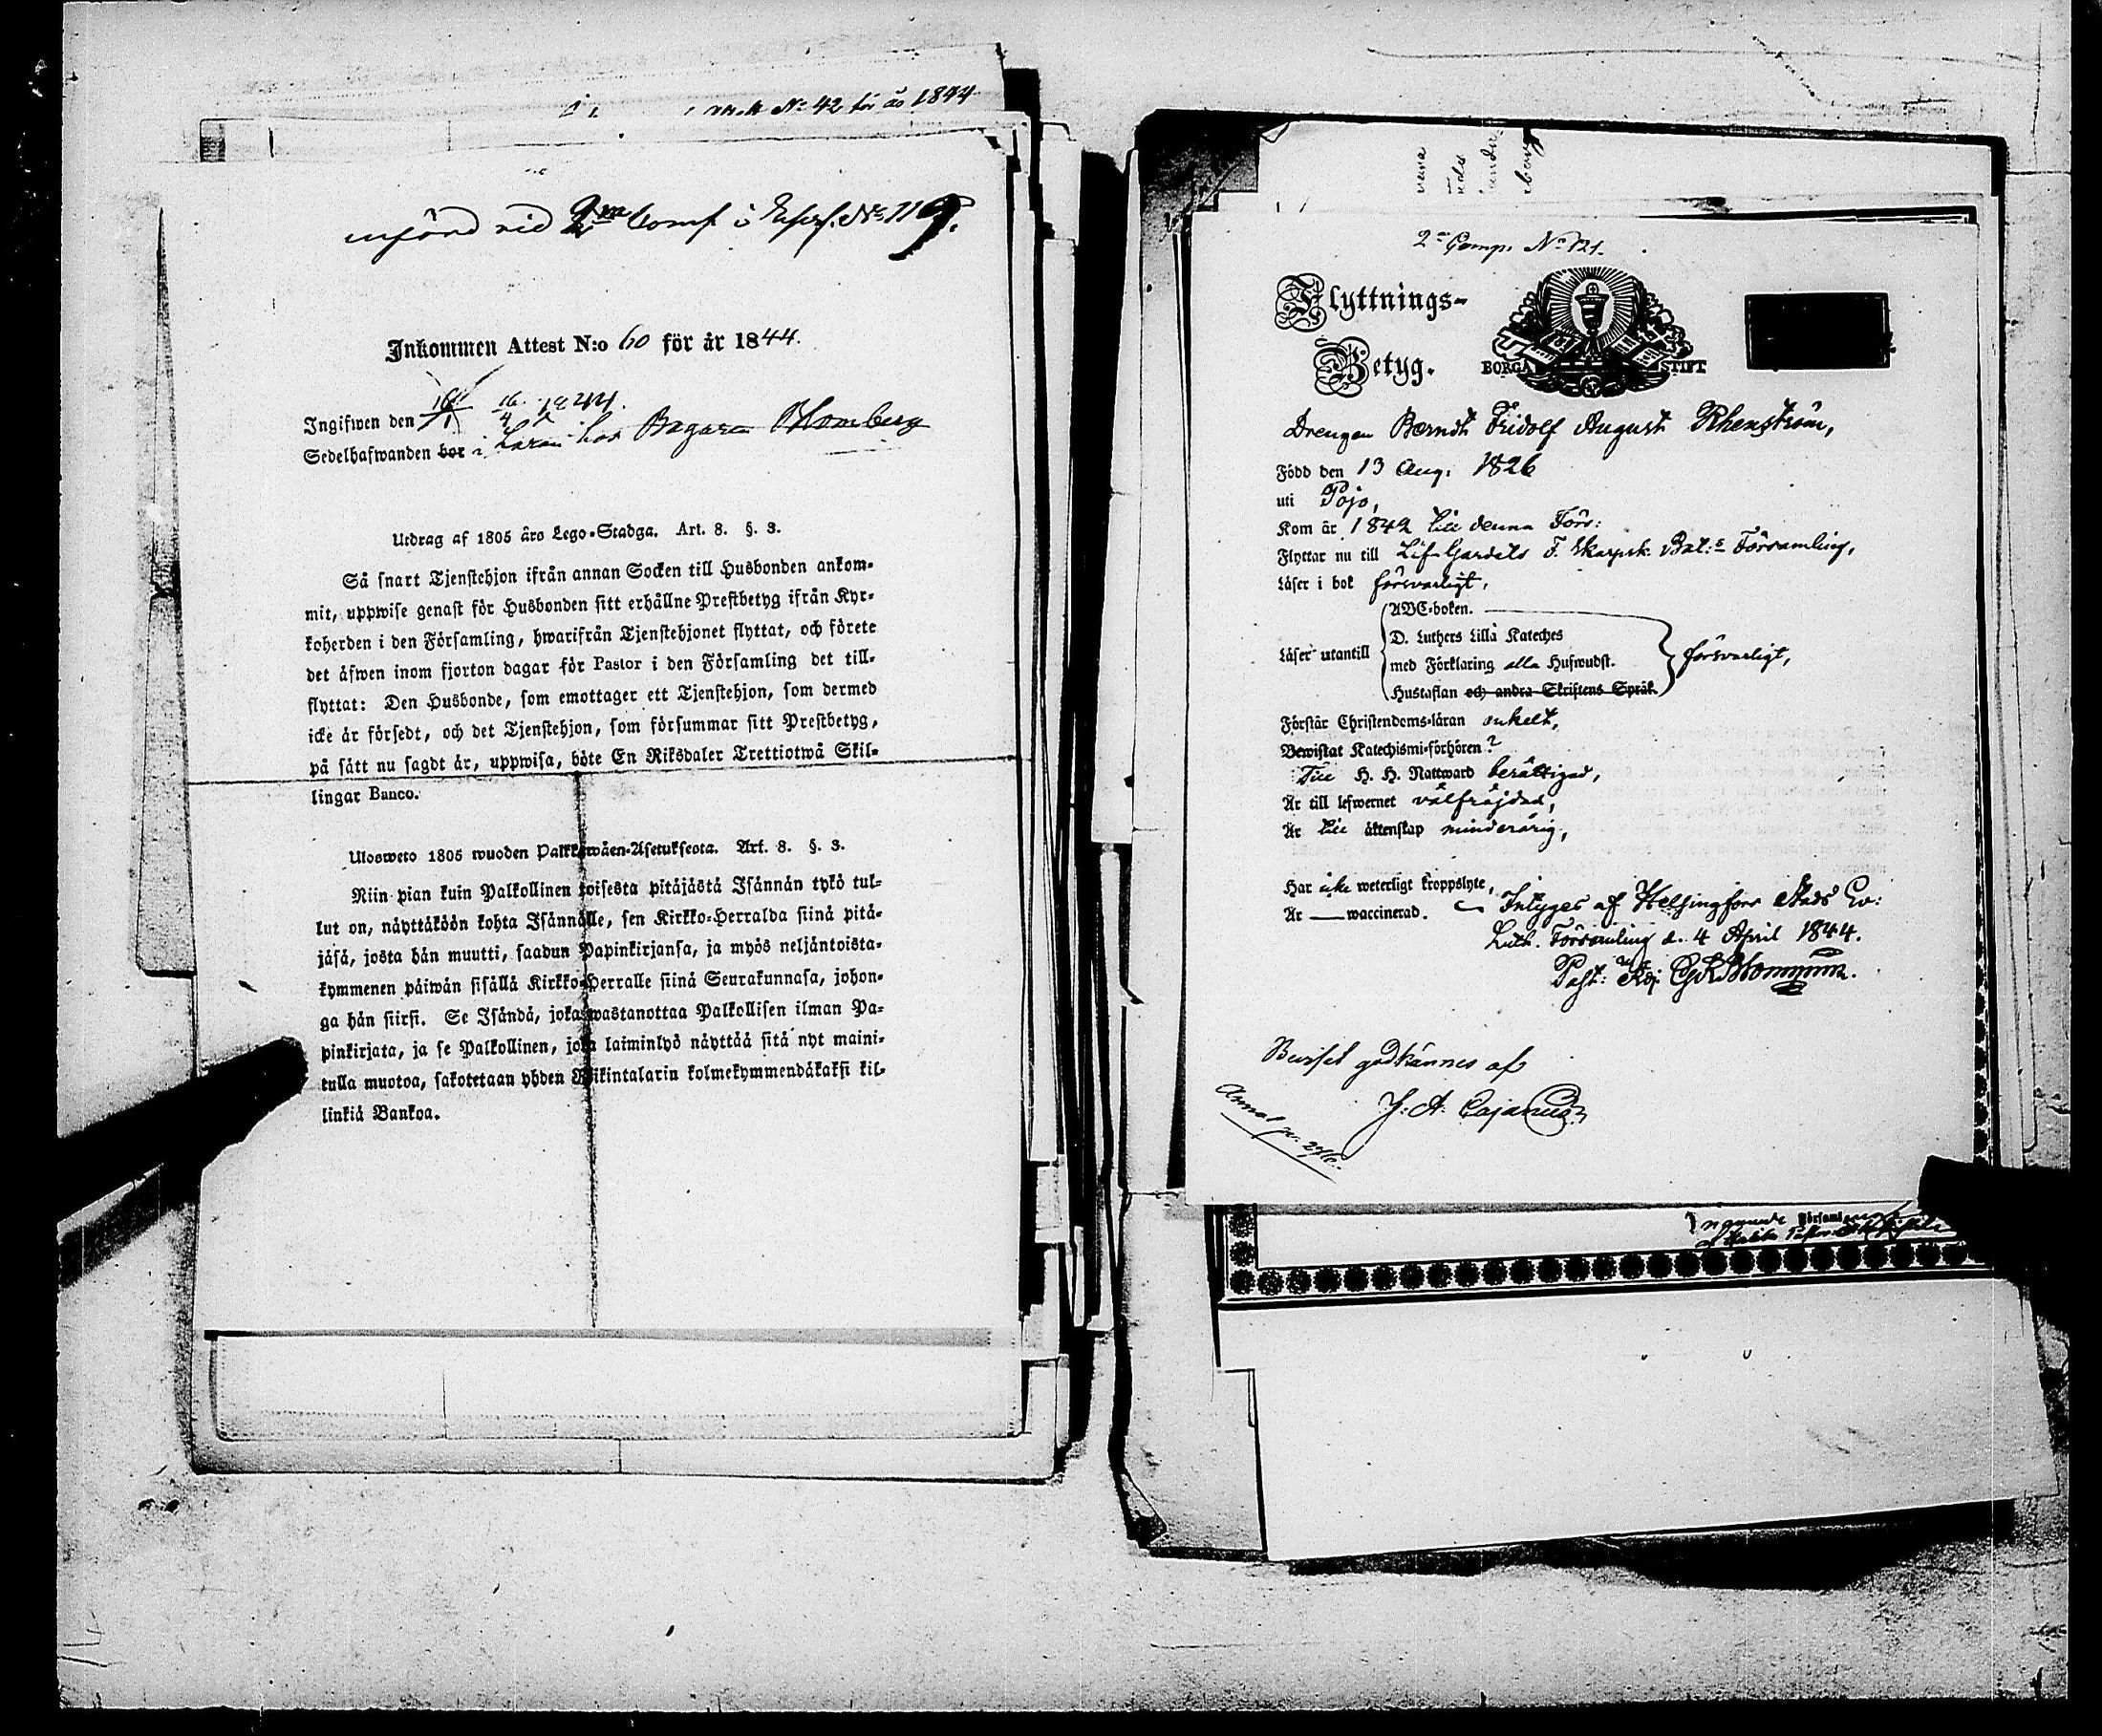 N:o 42 för år 1844
införd vid 2:a Comp i N:o 119.
Inkommen Attest N:o 60 för år 1844.
Ingifwen den 16/4 1844.
Sedelhafwanden bor i Läran hos Bagaren Blomberg
Utdrag af 1805 års Lego-Stadga. Art. 8. §. 3.
Så snart Tjenstehjon ifrån annan Socken till Husbonden ankom-
mit, uppwise genast för Husbonden sitt erhållne Prestbetyg ifrån Kyr-
koherden i den Församling, hwarifrån Tjenstehjonet flyttat, och förete
det äfwen inom fjorton dagar för Pastor i den Församling det till-
flyttat: Den Husbonde, som emottager ett Tjenstehjon, som dermed
icke är försedt, och det Tjenstehjon, som försummar sitt Prestbetyg,
på sätt nu sagdt är, uppwisa, böte En Riksdaler Trettiotwå Skil-
lingar Banco.
Ulosweto 1805 wuoden Palkkawäen-Asetuksesta. Art. 8. §. 3.
Niin pian kuin Palkollinen toisesta pitäjästä Isännän tykö tul-
lut on, näyttäköön kohta Isännälle, sen Kirkko-Herralda siinä pitä-
jäsä, josta hän muutti, saadun Papinkirjansa, ja myös neljäntoista-
kymmenen päiwän sisällä Kirkko-Herralle siinä Seurakunnasa, johon-
ga hän siirsi. Se Isändä, joka wastanottaa Palkollisen ilman Pa-
pinkirjata, ja se Palkollinen, joka laiminlyö näyttää sitä nyt maini-
tulla muotoa, sakotetaan yhden Riikintalarin kolmekymmendäkaksi kil-
linkiä Bankoa.
2:a Comp. N:o 121.
Flyttnings-
Betyg.
BORGÅ STIFT
Drengen Berndt Fridolf August Rhenström,
Född den 13 Aug. 1826
uti Pojo,
Kom år 1842 till denna Förs:
Flyttar nu till Lif-Gardets F. Skarpsk. Bat:s Församling,
Läser i bok försvarligt,
ABC-boken.
D. Luthers Lilla Kateches
Läser utantill med Förklaring alla Hufwudst. försvarligt,
Hustaflan och andra Skriftens Språk.
Förstår Christendoms-läran enkelt,
Bewistat Katechismi-förhören?
Till H. H. Nattward berättigad,
Är till lefwernet välfräjdad,
Är till äktenskap minderårig,
Har icke weterligt kroppslyte,
Är — waccinerad.
Intyges af Helsingfors Stads Ev:
Luth. Församling d. 4 April 1844.
Past:
Beviset godkännes af
J. A. Cajanus